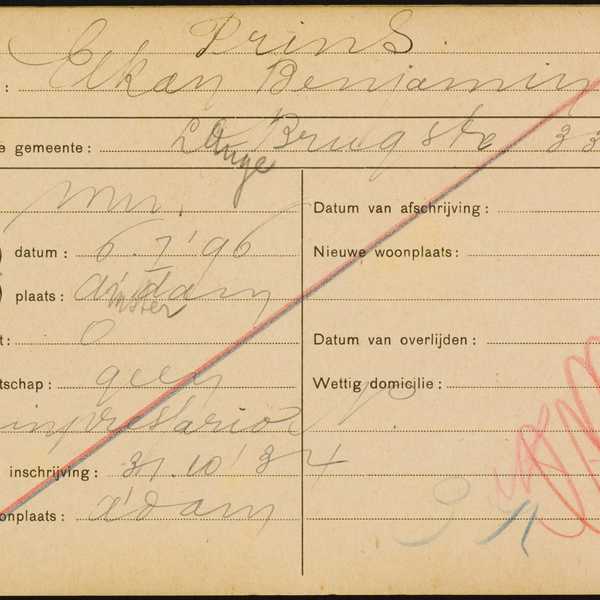 Prins
: Elkan Benjamin
e gemeente: Lange Brugstr 33
mn.
Datum van afschrijving:
datum: 6.7'96
Nieuwe woonplaats:
plaats: a'dam
mster
t: O
Datum van overlijden:
tschap: geen
Wettig domicilie:
impresario
inschrijving: 31.10'34
onplaats: a'dam